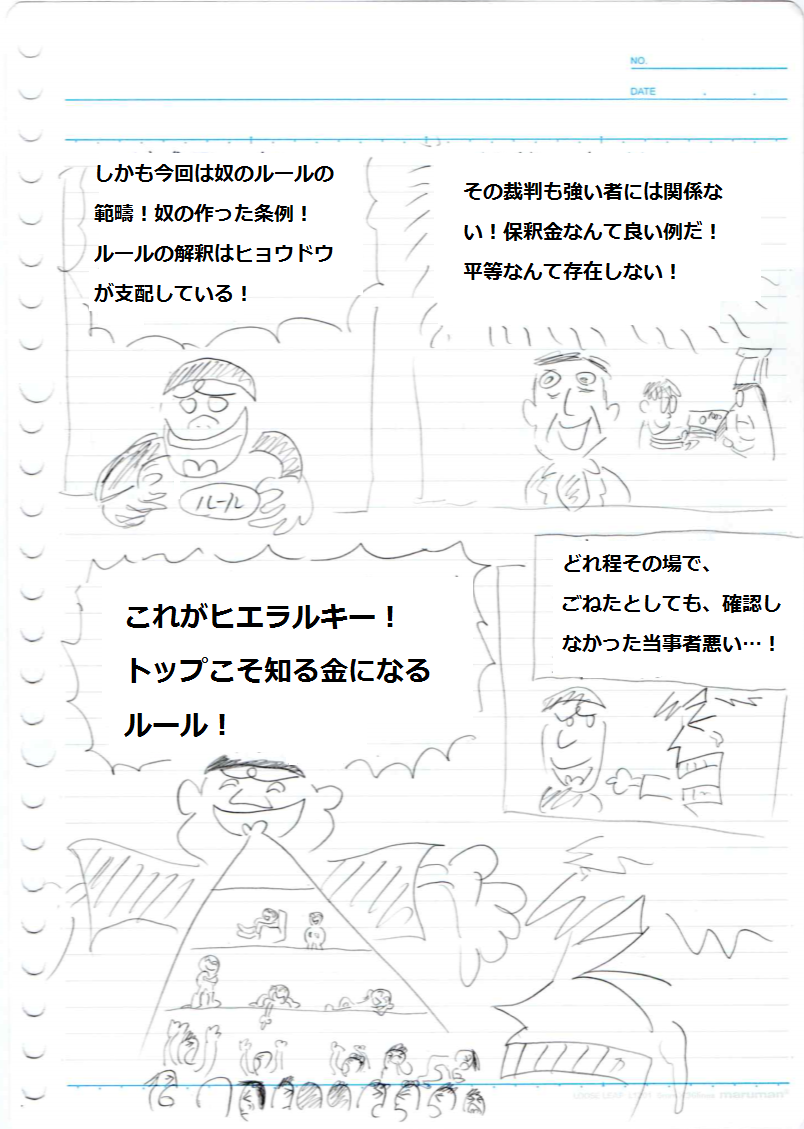 NO.
DATE
その裁判も強い者には関係な
い！保釈金なんて良い例だ！
平等なんて存在しない！
しかも今回は奴のルールの
範疇！奴の作った条例！
ルールの解釈はヒョウドウ
が支配している！
ルール
どれ程その場で、
ごねたとしても、確認し
なかった当事者悪い…！
これがヒエラルキー！
トップこそ知る金になる
ルール！
maruman